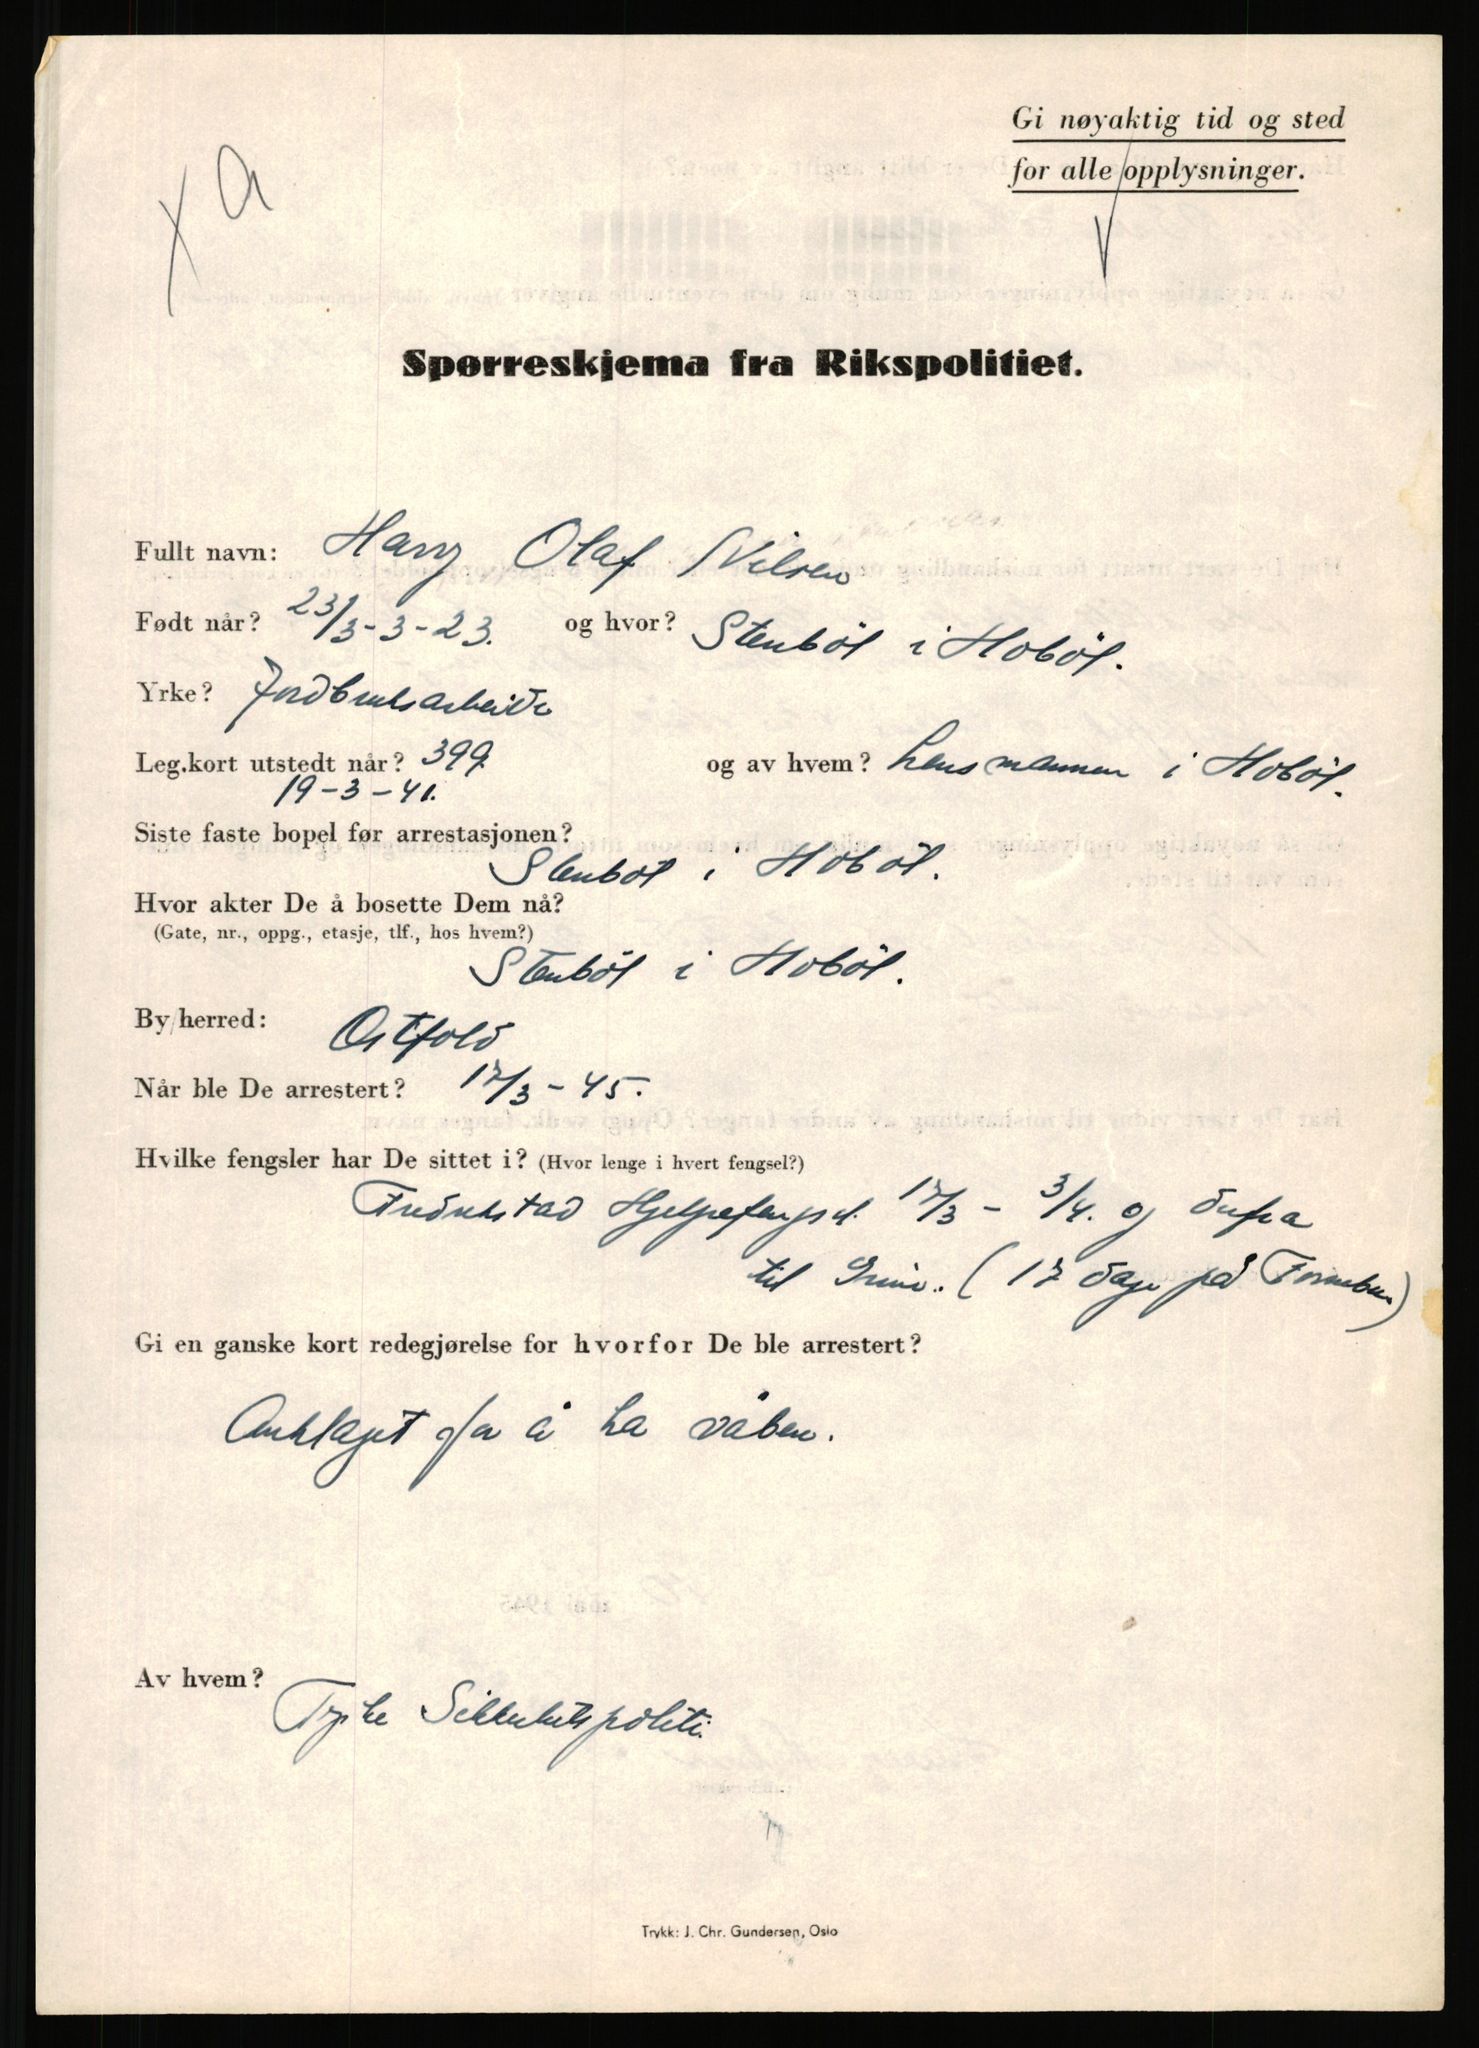 Gi nøyaktig tid og sted
for alle opplysninger.
x a
Spørreskjema fra Rikspolitiet.
Fullt navn: Harry Olaf Nilsen
Født når? 23/3-3-23. og hvor? Stenböl i Hoböl.
Yrke? Jordbruksarbeider
Leg.kort utstedt når? 399. og av hvem? Lensmannen i Hoböl.
19-3-41.
Siste faste bopel før arrestasjonen?
Stenböl i Hoböl.
Hvor akter De å bosette Dem nå?
(Gate, nr., oppg., etasje, tlf., hos hvem?)
Stenböl i Hoböl.
By/herred: Östfold
Når ble De arrestert? 17/3-45.
Hvilke fengsler har De sittet i? (Hvor lenge i hvert fengsel?)
Fredrikstad Hjelpefengsel. 17/3 - 3/4. og derfra
til Grini. (17 dage på Fornebu)
Gi en ganske kort redegjørelse for hvorfor De ble arrestert?
Anklaget for å ha våben.
Av hvem?
Tyske Sikkerhetspoliti.
Trykk: J. Chr. Gundersen, Oslo